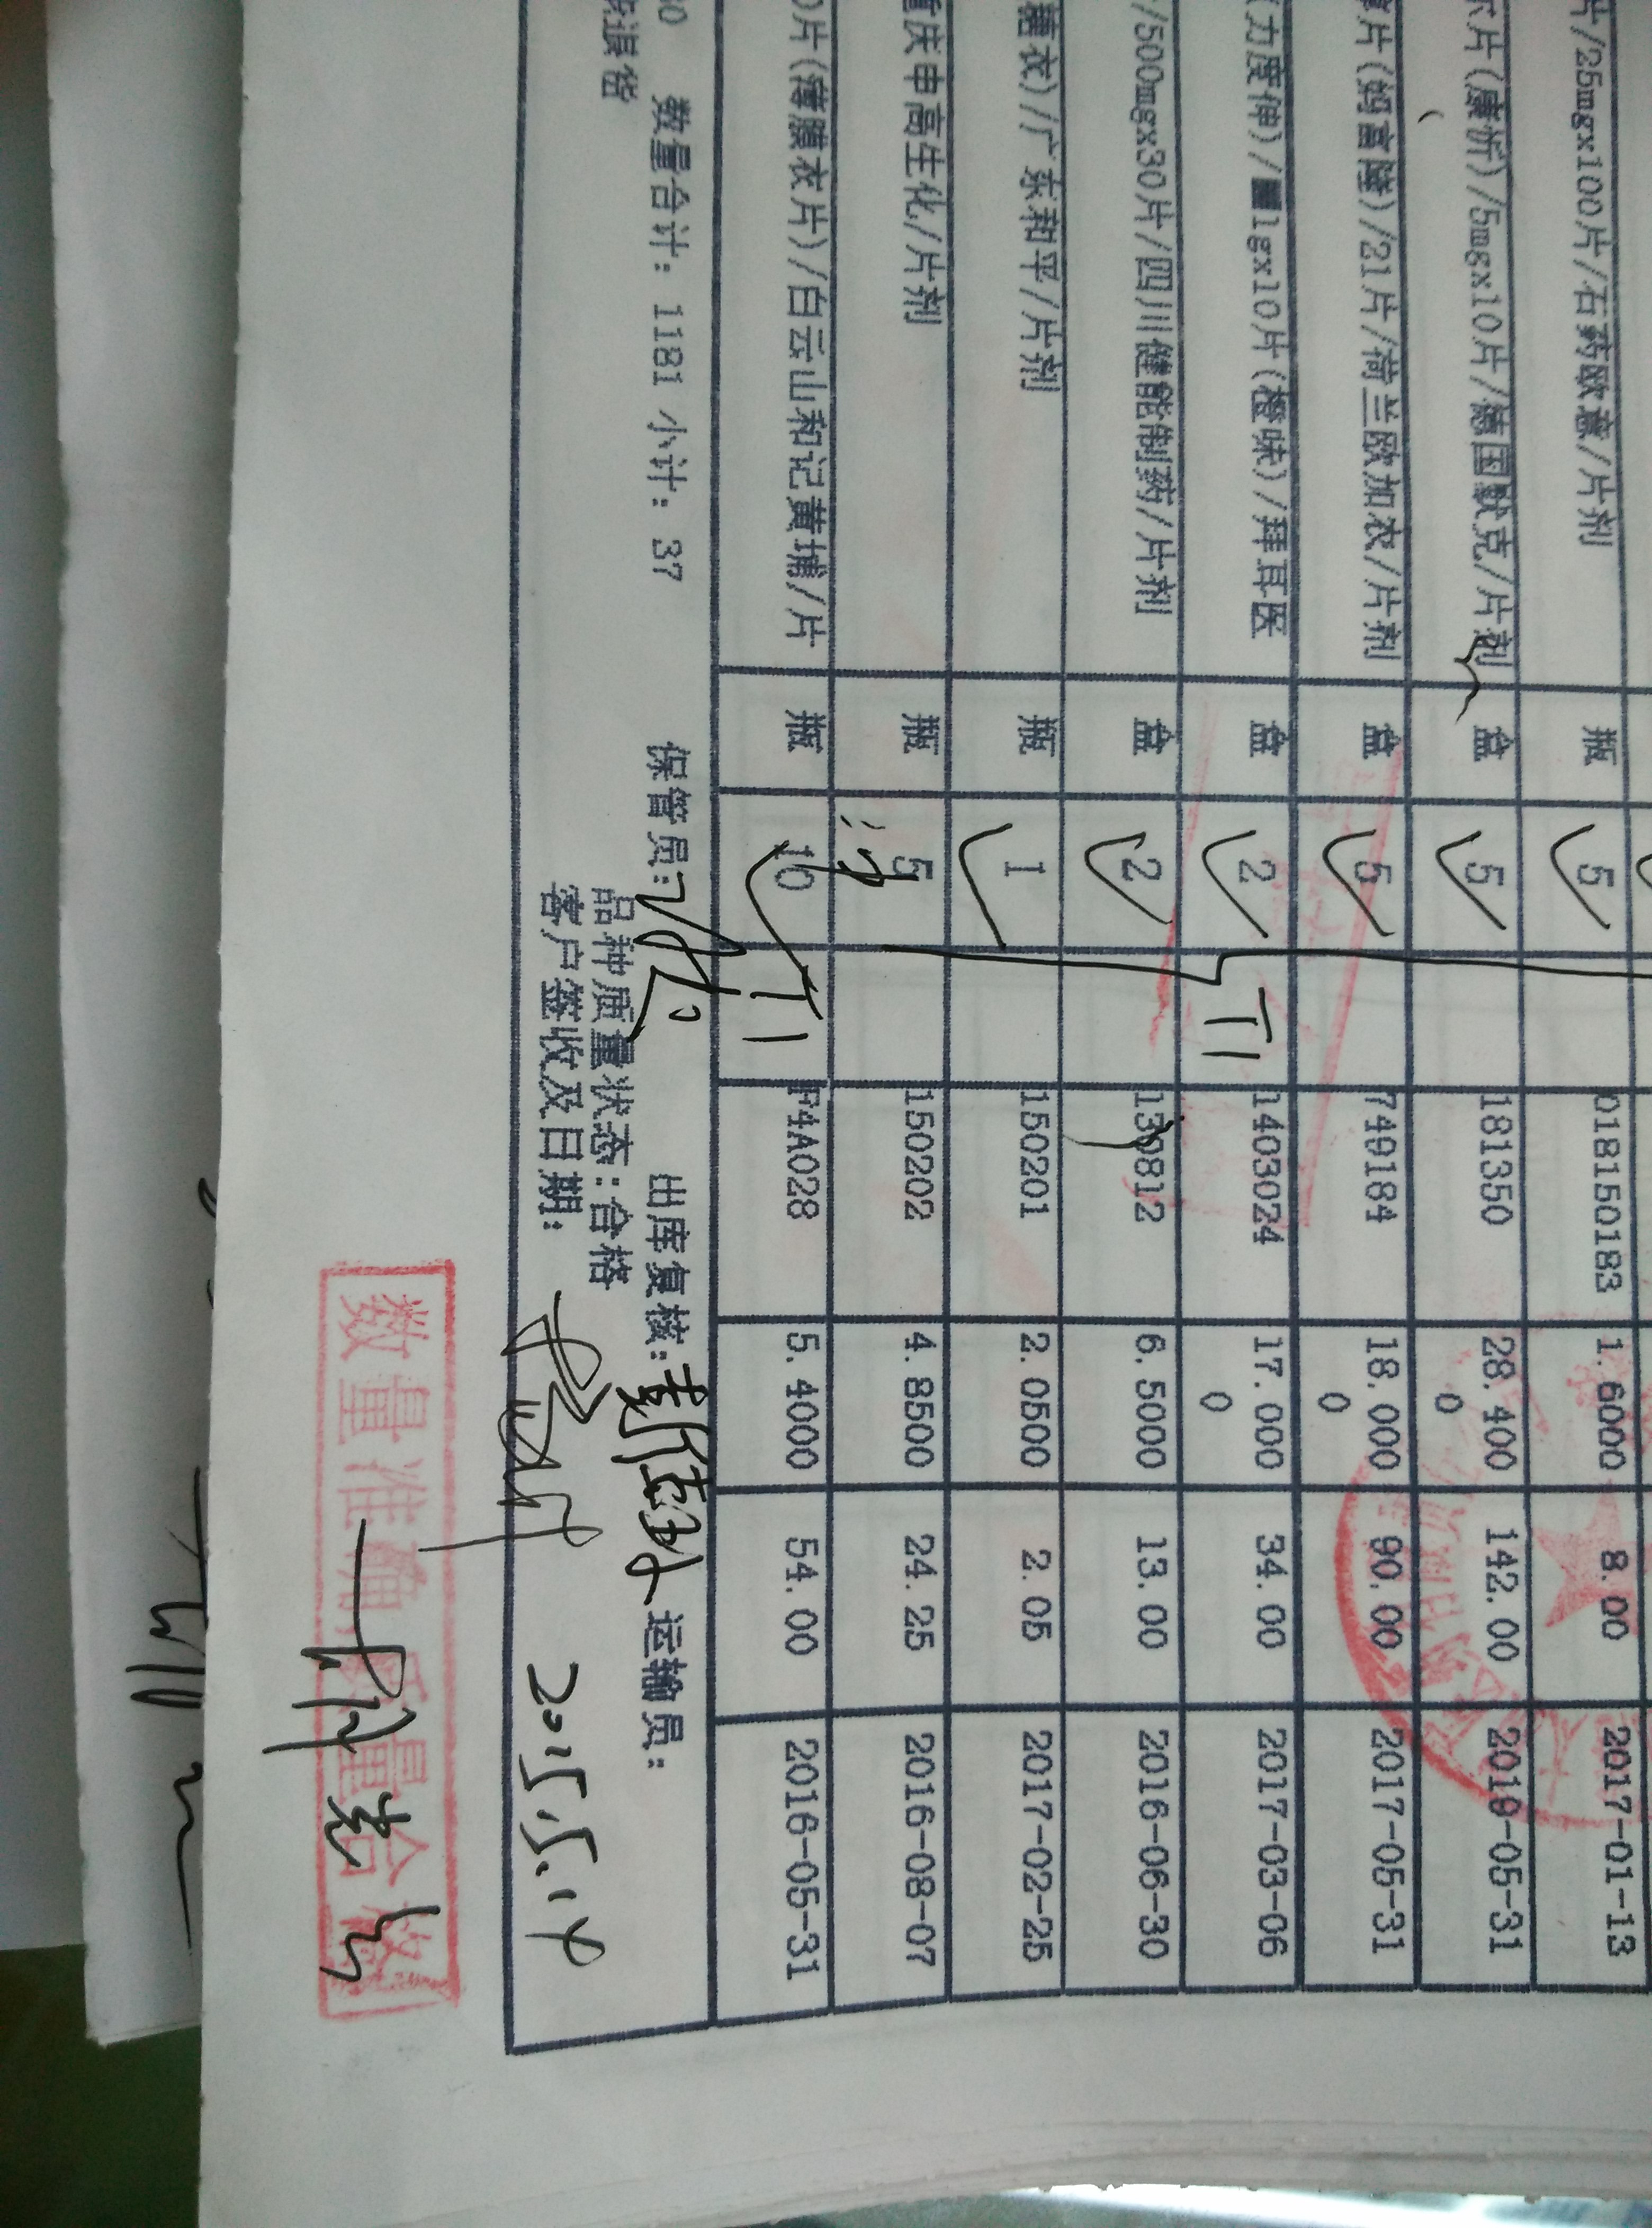 片/25mgx100片/石药欧意/片剂 瓶 5 018150183 1.6000 8.00 2017-01-13
片(康忻)/5mgx10片/德国默克/片剂 盒 5 181350 28.4000 142.00 2019-05-31
片(妈富隆)/21片/荷兰欧加农/片剂 盒 5 749184 18.0000 90.00 2017-05-31
(力度伸)/1gx10片(橙味)/拜耳医 盒 2 T1 1403024 17.0000 34.00 2017-03-06
/500mgx30片/四川健能制药/片剂 盒 2 130812 6.5000 13.00 2016-06-30
糖衣)/广东和平/片剂 瓶 1 150201 2.0500 2.05 2017-02-25
重庆申高生化/片剂 瓶 5 150202 4.8500 24.25 2016-08-07
0片(薄膜衣片)/白云山和记黄埔/片 瓶 10 T1 F4A028 5.4000 54.00 2016-05-31
数量合计: 1181 小计: 37 保管员: 出库复核: 运输员:
品种质量状态:合格
客户签收及日期: 2015.5.14
数量准确质量合格